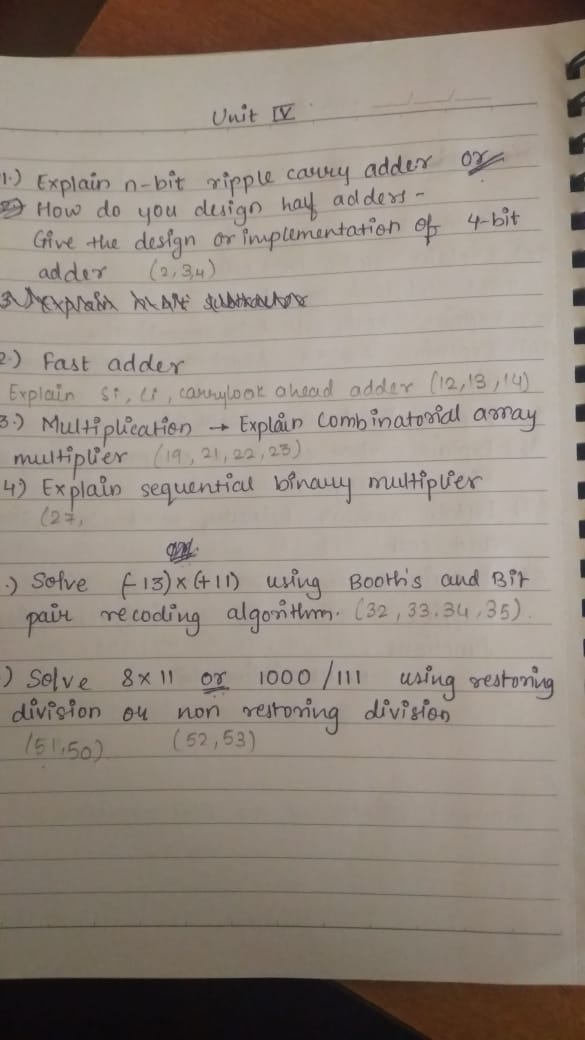 Unit IV
1.) Explain n-bit ripple carry adder or
How do you design half adders-
Give the design or implementation of 4-bit
adder (2,3,4)
2.) Fast adder
Explain Si, Ci, carrylook ahead adder (12,13,14)
3.) Multiplication → Explain Combinatorial array
multiplier (19, 21, 22, 23)
4.) Explain sequential binary multiplier
(27,
.) Solve (-13) x (+11) using Booth's and Bit
pair recoding algorithm. (32, 33, 34, 35)
.) Solve 8x11 or 1000/111 using restoring
division or non restoring division
(51,50) (52,53)